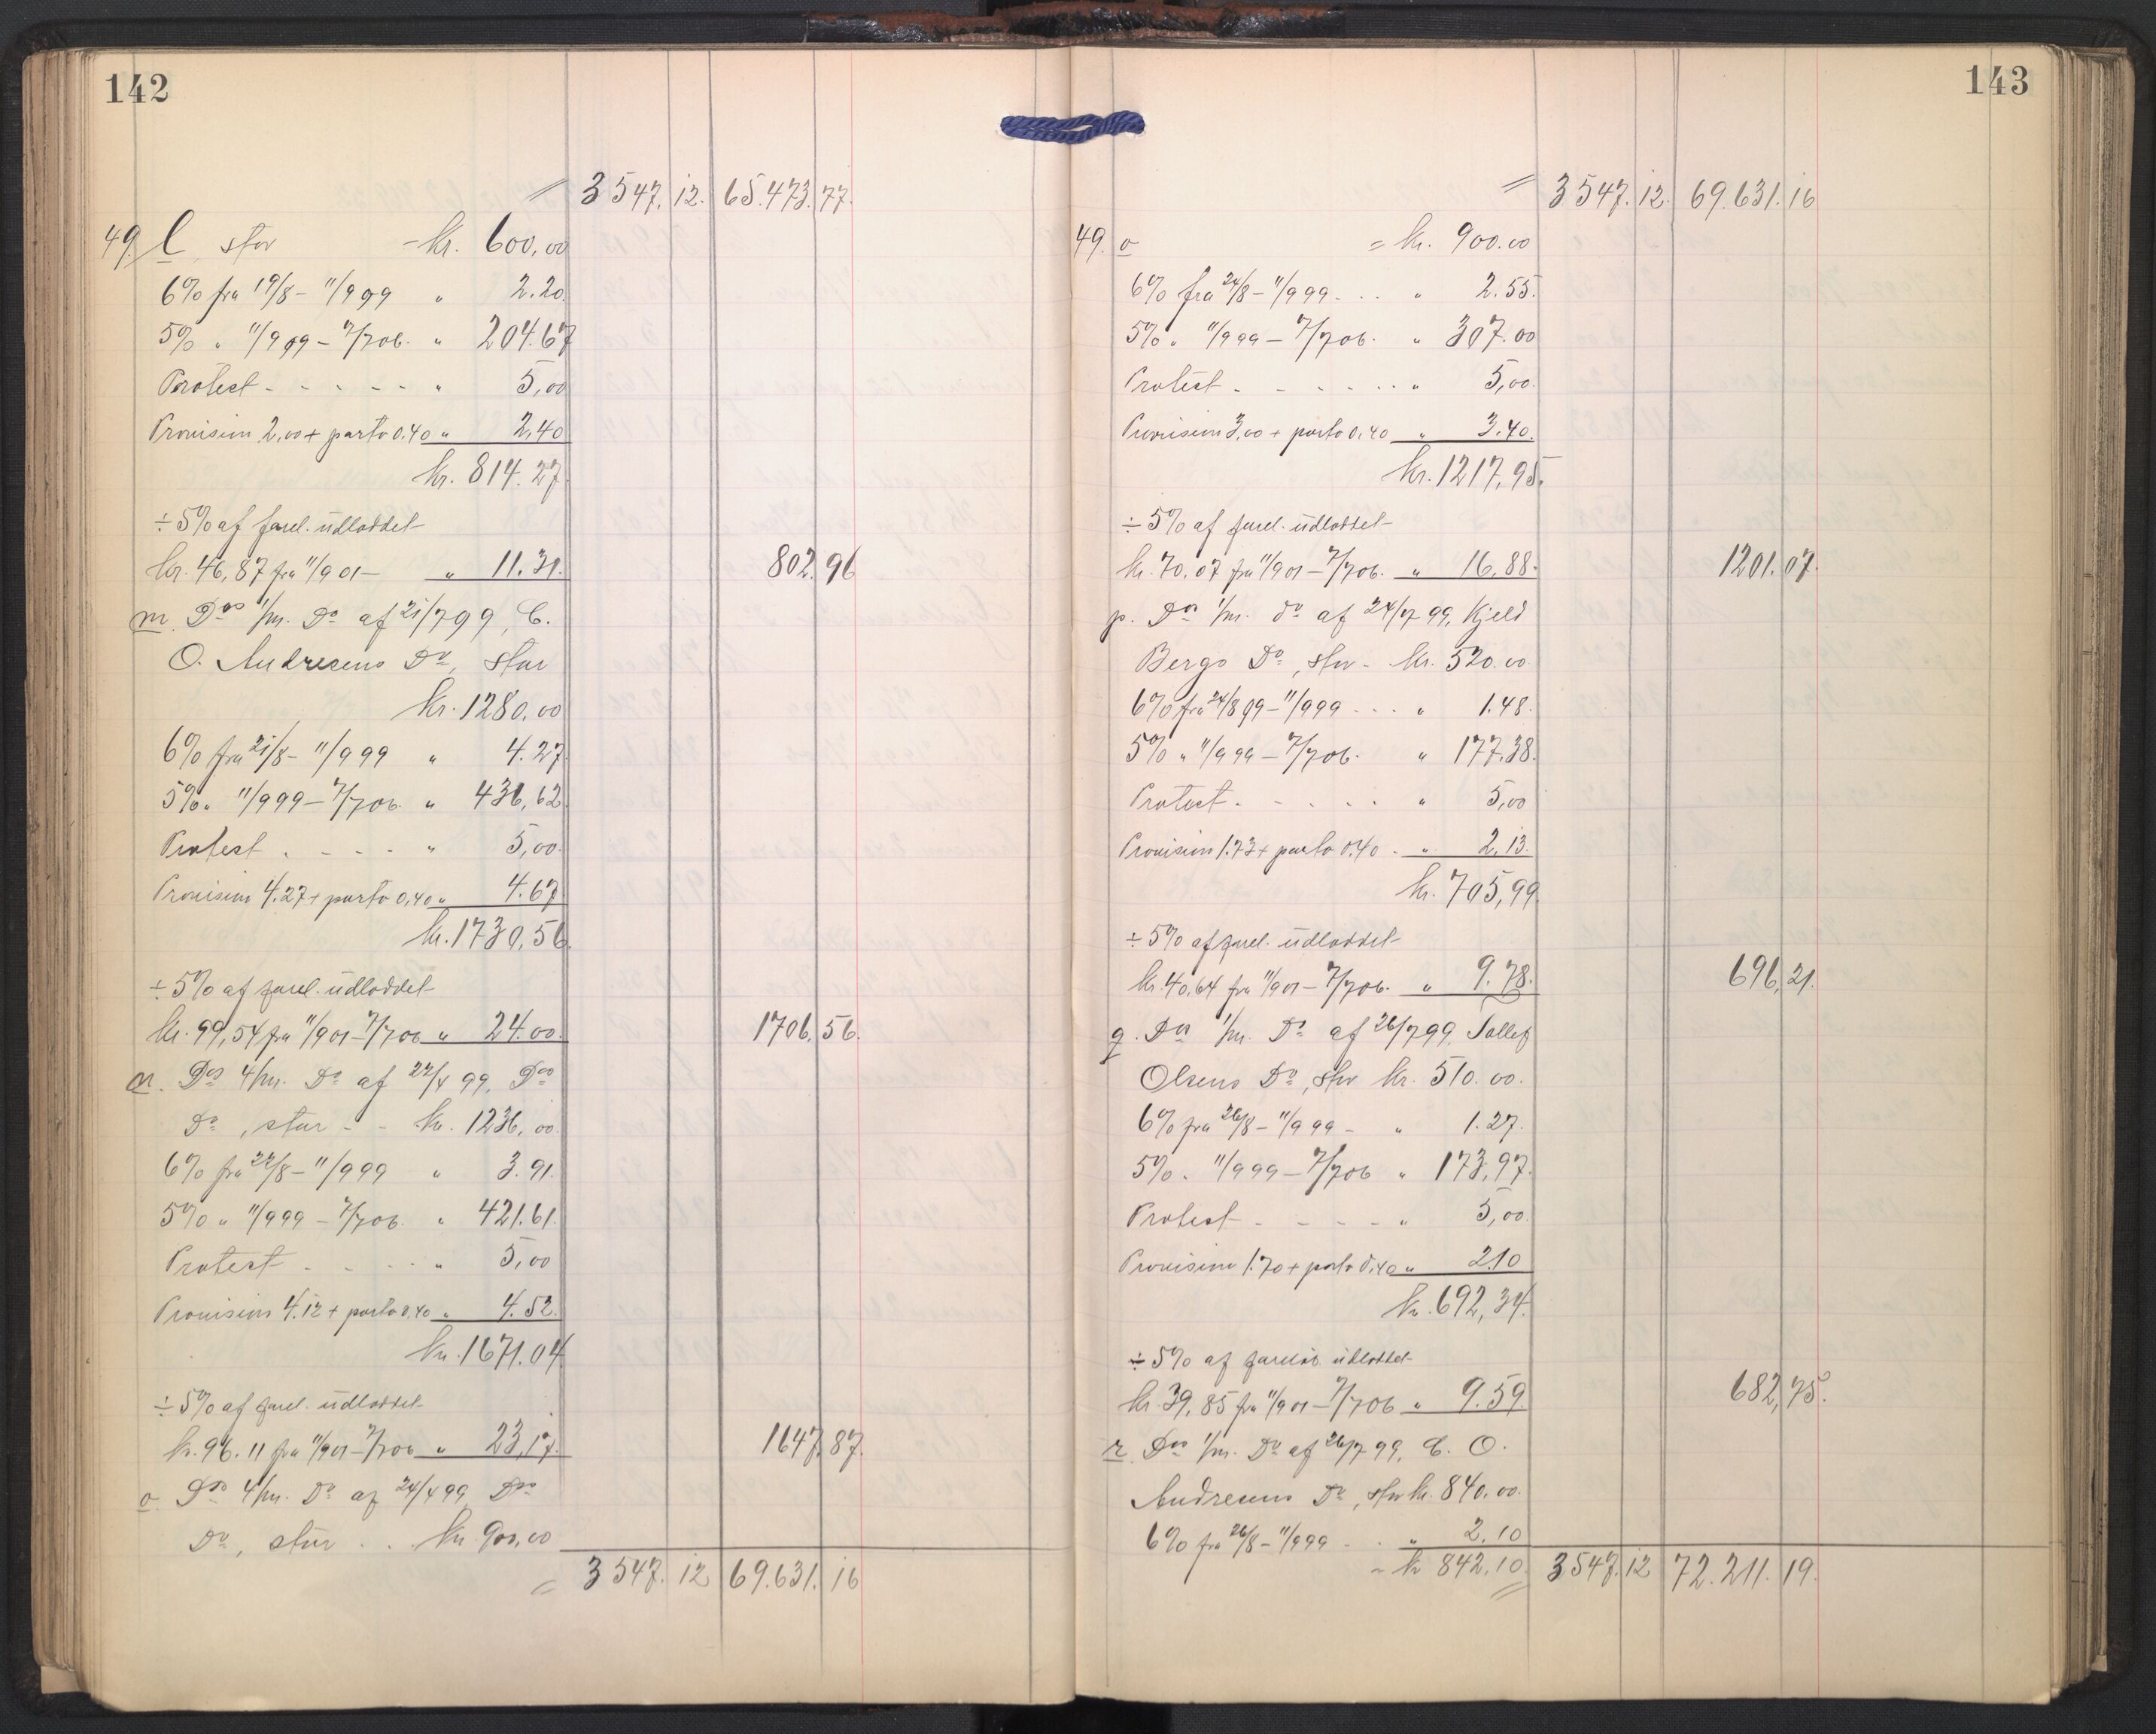 142
3547.12. 65.473.77.
49. l, stor - kr. 600,00
6% fra 19/8 - 11/9 99 " 2.20.
5% " 11/9 99 - 7/7 06. " 204.67
Protest - - - - - " 5,00
Provision 2,00 + porto 0.40 " 2,40
kr. 814.27
÷ 5% af forel. udloddet
kr. 46,87 fra 11/9 01 - " 11.31. 802.96
m. Dos 1/m. Do af 21/7 99, C.
O. Andresens Do, stor
kr. 1280.00
6% fra 21/8 - 11/9 99 " 4.27
5% " 11/9 99 - 7/7 06. " 436,62
Protest . - - - " 5,00.
Provision 4.27 + porto 0,40 " 4.67
kr. 1730,56
÷ 5% af forel. udloddet
kr. 99,54 fra 11/9 01 - 7/7 06 " 24.00. 1706.56.
n. Dos 4/m. Do af 22/4 99, Dos
Do, stor - - kr. 1236,00.
6% fra 22/8 - 11/9 99 " 3.91.
5% " 11/9 99 - 7/7 06. " 421.61.
Protest . - . . " 5,00
Provision 4.12 + porto 0,40 " 4.52.
kr. 1671.04
÷ 5% af forel. udloddet
kr. 96.11 fra 11/9 01 - 7/7 06 " 23,17. 1647.87.
o. Dos 4/m. Do af 24/4 99, Dos
Do, stor . . kr. 900,00
3547.12 69.631.16
143
3547.12. 69.631.16
49. o = kr. 900.00
6% fra 24/8 - 11/9 99 - . . " 2.55.
5% " 11/9 99 - 7/7 06. " 307.00
Protest . - - . . . " 5,00.
Provision 3,00 + porto 0,40 " 3.40.
kr. 1217,95.
÷ 5% af forel. udloddet
kr. 70.07 fra 11/9 01 - 7/7 06. " 16,88. 1201.07.
p. Dos 1/m. do af 24/7 99, Kjeld
Bergs Do, stor - kr. 520.00
6% fra 24/8 99 - 11/9 99 - . . " 1.48.
5% " 11/9 99 - 7/7 06. " 177.38.
Protest . - - . . " 5,00
Provision 1.73 + porto 0.40 . " 2,13.
kr. 705,99.
÷ 5% af forel. udloddet
kr. 40,64 fra 11/9 01 - 7/7 06. " 9.78. 696,21.
q. Dos 1/m. Do af 26/7 99, Tollef
Olsens Do, stor kr. 510.00.
6% fra 26/8 - 11/9 99 - " 1.27.
5% . 11/9 99 - 7/7 06 " 173,97.
Protest - - - - " 5,00.
Provision 1.70 + porto 0,40 " 2.10
kr. 692,34.
÷ 5% af udloddet
kr. 39,85 fra 11/9 01 - 7/7 06 " 9.59. 682,75.
r. Dos 1/m. Do af 26/7 99, C. O.
Andresens Do, stor kr. 840.00.
6% fra 26/8 - 11/9 99 - . " 2.10
- kr 842.10. 3547.12 72.211.19.